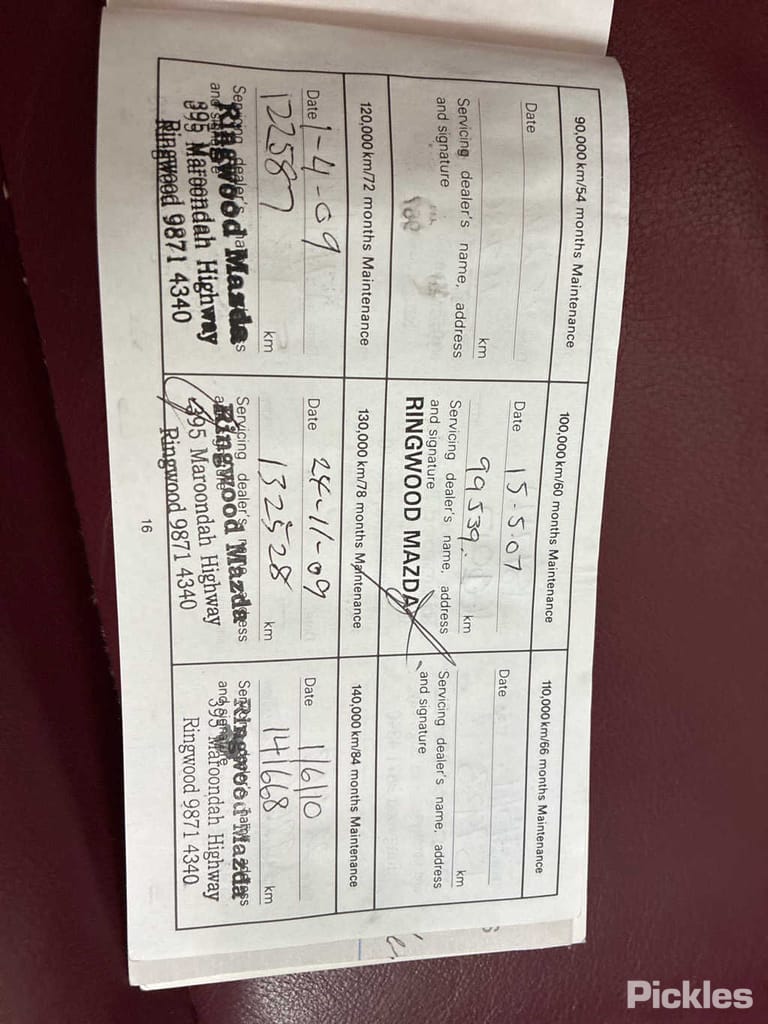 90,000 km/54 months Maintenance
Date
km
Servicing dealer's name, address
and signature
100,000 km/60 months Maintenance
Date 15-5-07
99539 km
Servicing dealer's name, address
and signature
RINGWOOD MAZDA
110,000 km/66 months Maintenance
Date
km
Servicing dealer's name, address
and signature
120,000 km/72 months Maintenance
Date 1-4-09
122587 km
Servicing dealer's name, address
and signature
Ringwood Mazda
395 Maroondah Highway
Ringwood 9871 4340
130,000 km/78 months Maintenance
Date 24-11-09
132528 km
Servicing dealer's name, address
and signature
Ringwood Mazda
395 Maroondah Highway
Ringwood 9871 4340
140,000 km/84 months Maintenance
Date 1/6/10
141668 km
Servicing dealer's name, address
and signature
Ringwood Mazda
395 Maroondah Highway
Ringwood 9871 4340
16
Pickles